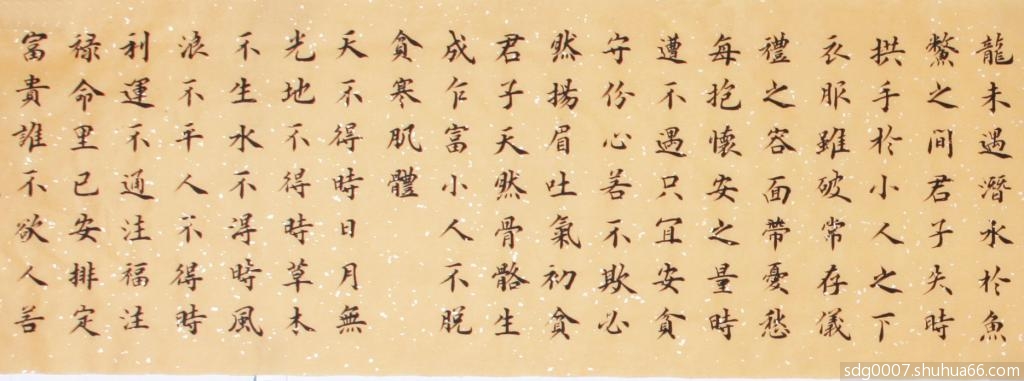 龍未遇潛水於魚
鱉之間君子失時
拱手於小人之下
衣服雖破常存儀
禮之容面帶憂愁
每抱懷安之量時
遭不遇只宜安貧
守份心若不欺必
然揚眉吐氣初貧
君子天然骨骼生
成乍富小人不脫
貧寒肌體
天不得時日月無
光地不得時草木
不生水不得時風
浪不平人不得時
利運不通注福注
祿命里已安排定
富貴誰不欲人若
sdg0007.shuhua66.com